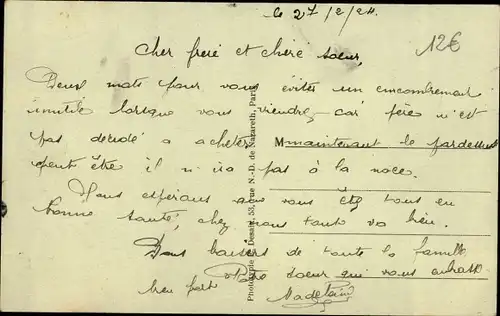 le 27/2/24.
12€
Cher frere et chère soeur,
Deux mots pour vous éviter un encombrement
inutile lorsque vous viendrez car père n'est
pas décidé a acheter Mmaintenant le pardessus
peut être il n'ira pas à la noce.
Nous espérons que vous êtes tous en
bonne santé, chez nous tout va bien.
Bons baisers de toute la famille
Votre soeur qui vous embrasse
bien fort Madeleine
Phototypie A. Desaix, 53, rue N.-D. de Nazareth, Paris